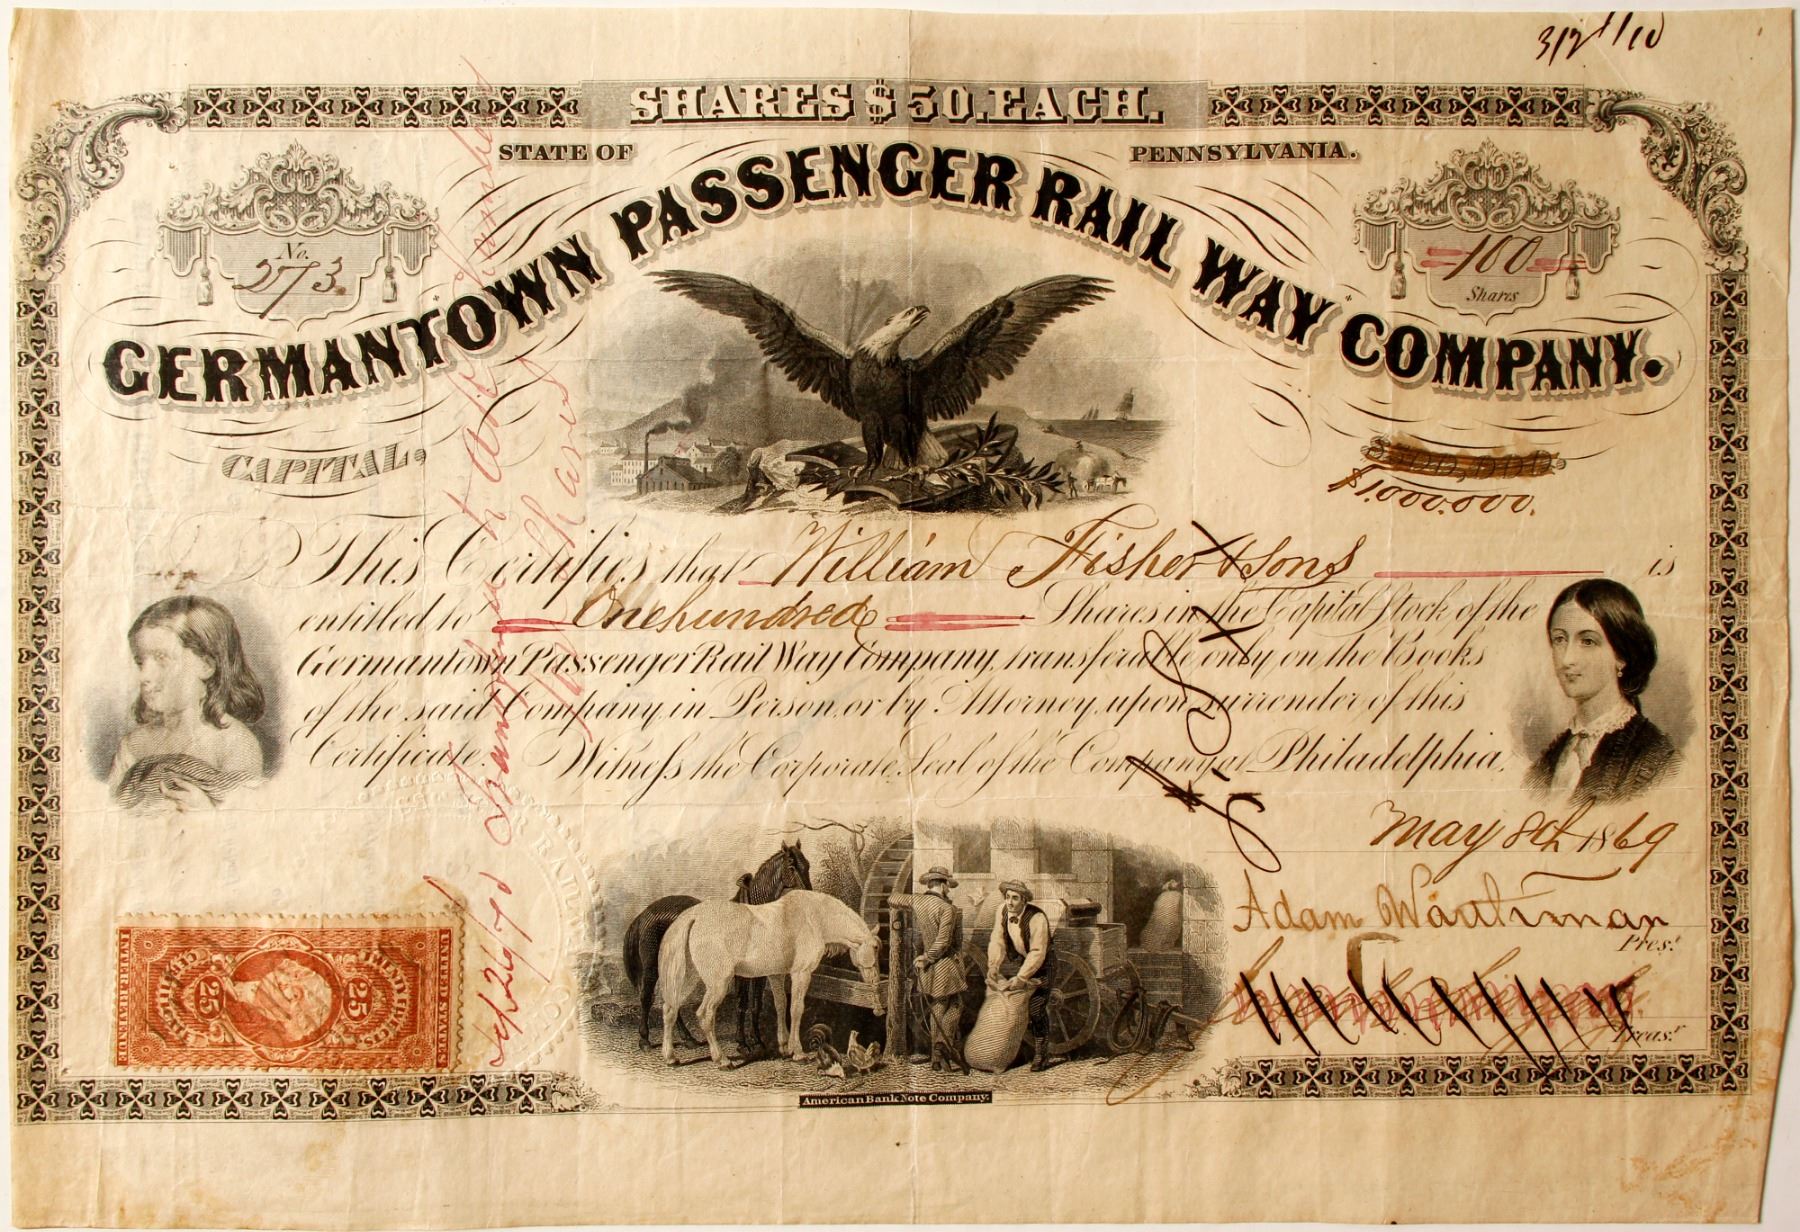 SHARES $50. EACH.
STATE OF PENNSYLVANIA.
GERMANTOWN PASSENGER RAIL WAY COMPANY.
No.
273.
100
Shares
CAPITAL,
$500,000.
$1.000.000.
This Certifies that William Fisher & Sons is
entitled to One hundred Shares in the Capital Stock of the
Germantown Passenger Rail Way Company, transferable only on the Books
of the said Company, in Person, or by Attorney, upon surrender of this
Certificate. Witness the Corporate Seal of the Company at Philadelphia,
May 8th 1869
Adam Warthman
Prest.
Treasr.
UNITED STATES
INTER. REVENUE
25
25
American Bank Note Company.